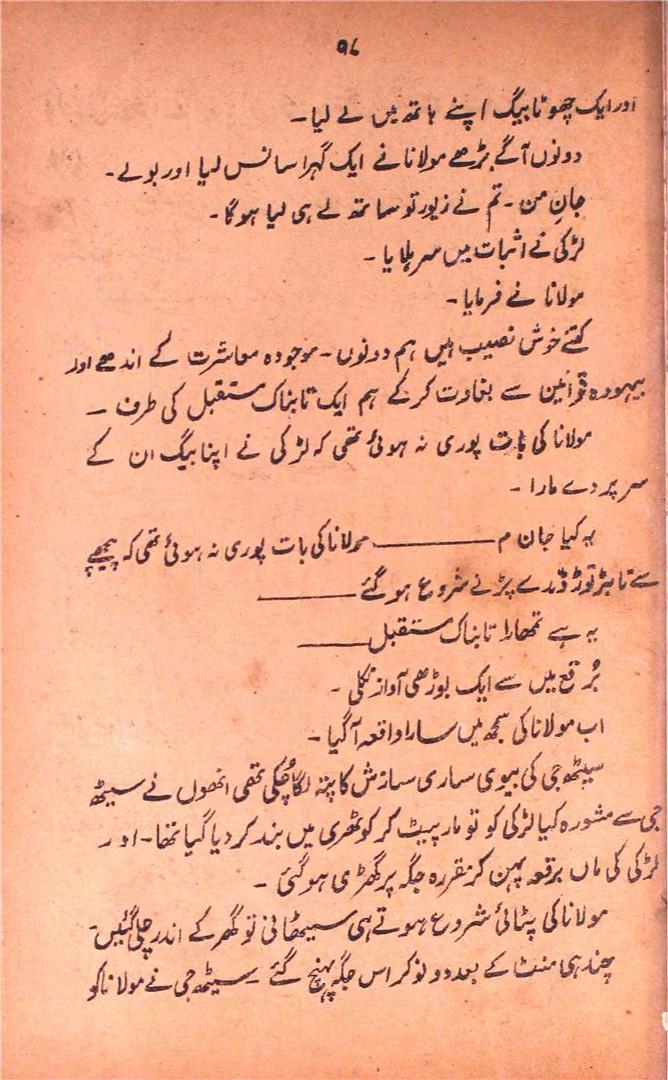 ۹۸
اور ایک چھوٹا بیگ اپنے ہاتھ میں لے لیا۔
دونوں آگے بڑھے مولانا نے ایک گہرا سانس لیا اور بولے۔
جانِ من۔ تم نے زیور تو ساتھ لے ہی لیا ہوگا۔
لڑکی نے اثبات میں سر ہلایا۔
مولانا نے فرمایا۔
کتنے خوش نصیب ہیں ہم دونوں۔ موجودہ معاشرت کے اندھے اور
بیہودہ قوانین سے بغاوت کرکے ہم ایک تابناک مستقبل کی طرف ۔
مولانا کی بات پوری نہ ہوئی تھی کہ لڑکی نے اپنا بیگ ان کے
سر پر دے مارا۔
یہ کیا جان م ــــــــ مولانا کی بات پوری نہ ہوئی تھی کہ پیچھے
سے تابڑتوڑ ڈنڈے پڑنے شروع ہوگئے ــــــــ
یہ ہے تمھارا تابناک مستقبل ــــــــ
بُرقع میں سے ایک بوڑھی آواز نکلی۔
اب مولانا کی سمجھ میں سارا واقعہ آگیا۔
سیٹھ جی کی بیوی ساری سازش کا پتہ لگا چُکی تھی انھوں نے سیٹھ
جی سے مشورہ کیا لڑکی کو تو مار پیٹ کر کوٹھری میں بند کر دیا گیا تھا۔ اور
لڑکی کی ماں برقعہ پہن کر مقررہ جگہ پر کھڑی ہوگئی۔
مولانا کی پٹائی شروع ہوتے ہی سیٹھانی تو گھر کے اندر چلی گئیں۔
چند ہی منٹ کے بعد دو نوکر اس جگہ پہنچ گئے ۔ سیٹھ جی نے مولانا کو